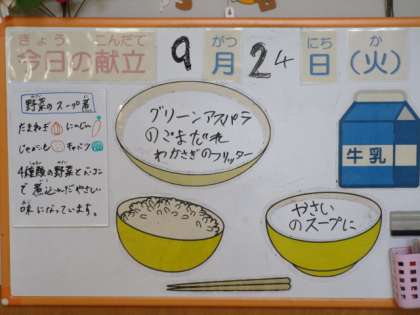 きょう こんだて
今日の献立
9 がつ 24 にち か
月 日 (火)
野菜のスープ煮
たまねぎ にんじん
じゃがいも キャベツ
4種類の野菜とベーコン
で煮込んだやさしい
味になっています。
グリーンアスパラ
のごまだれ
わかさぎのフリッター
牛乳
やさい
のスープに